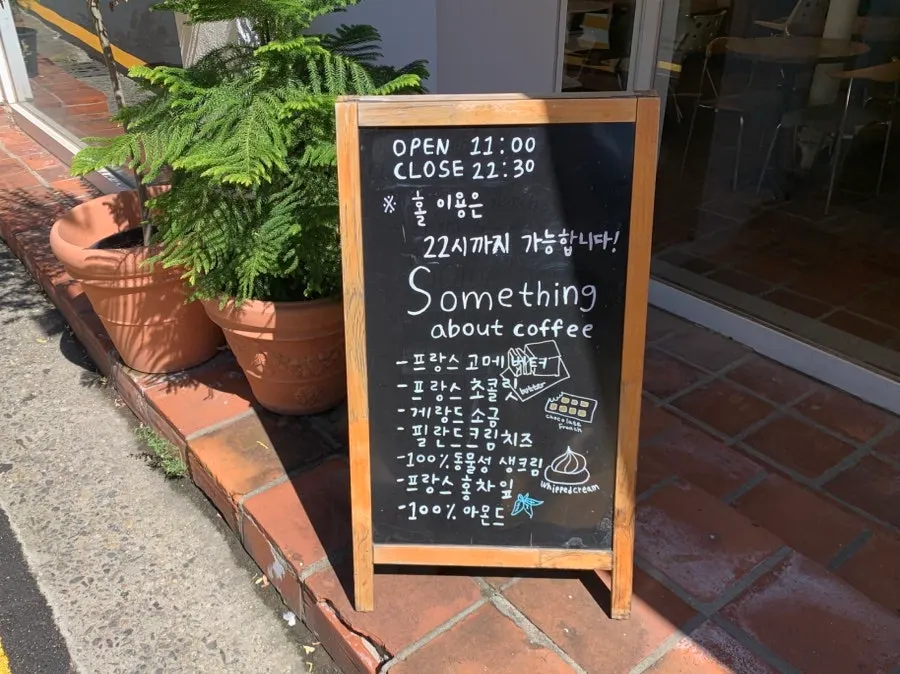 OPEN 11:00
CLOSE 22:30
※ 홀 이용은
22시까지 가능합니다!
Something
about coffee
-프랑스 고메버터
-프랑스 초콜릿
butter
-게랑드 소금
chocolate
French
-필란드크림치즈
-100%동물성 생크림
whippedcream
-프랑스 홍차 잎
-100% 아몬드